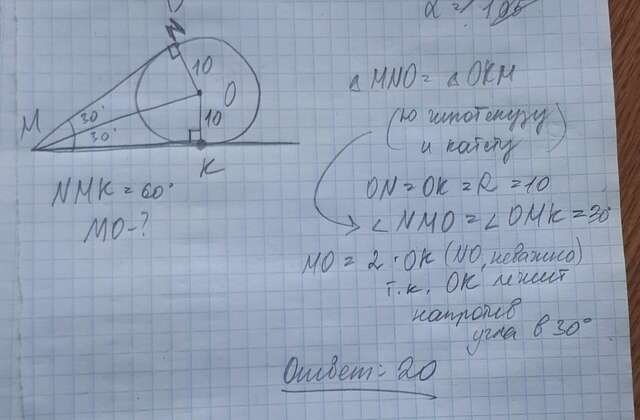 N
10
M
30°
30°
O
10
K
NMK = 60°
MO - ?
△ MNO = △ OKM
(по гипотенузу
и катету)
ON = OK = R = 10
∠ NMO = ∠ OMK = 30°
MO = 2 · OK (NO, неважно)
т.к. OK лежит
напротив
угла в 30°
Ответ: 20